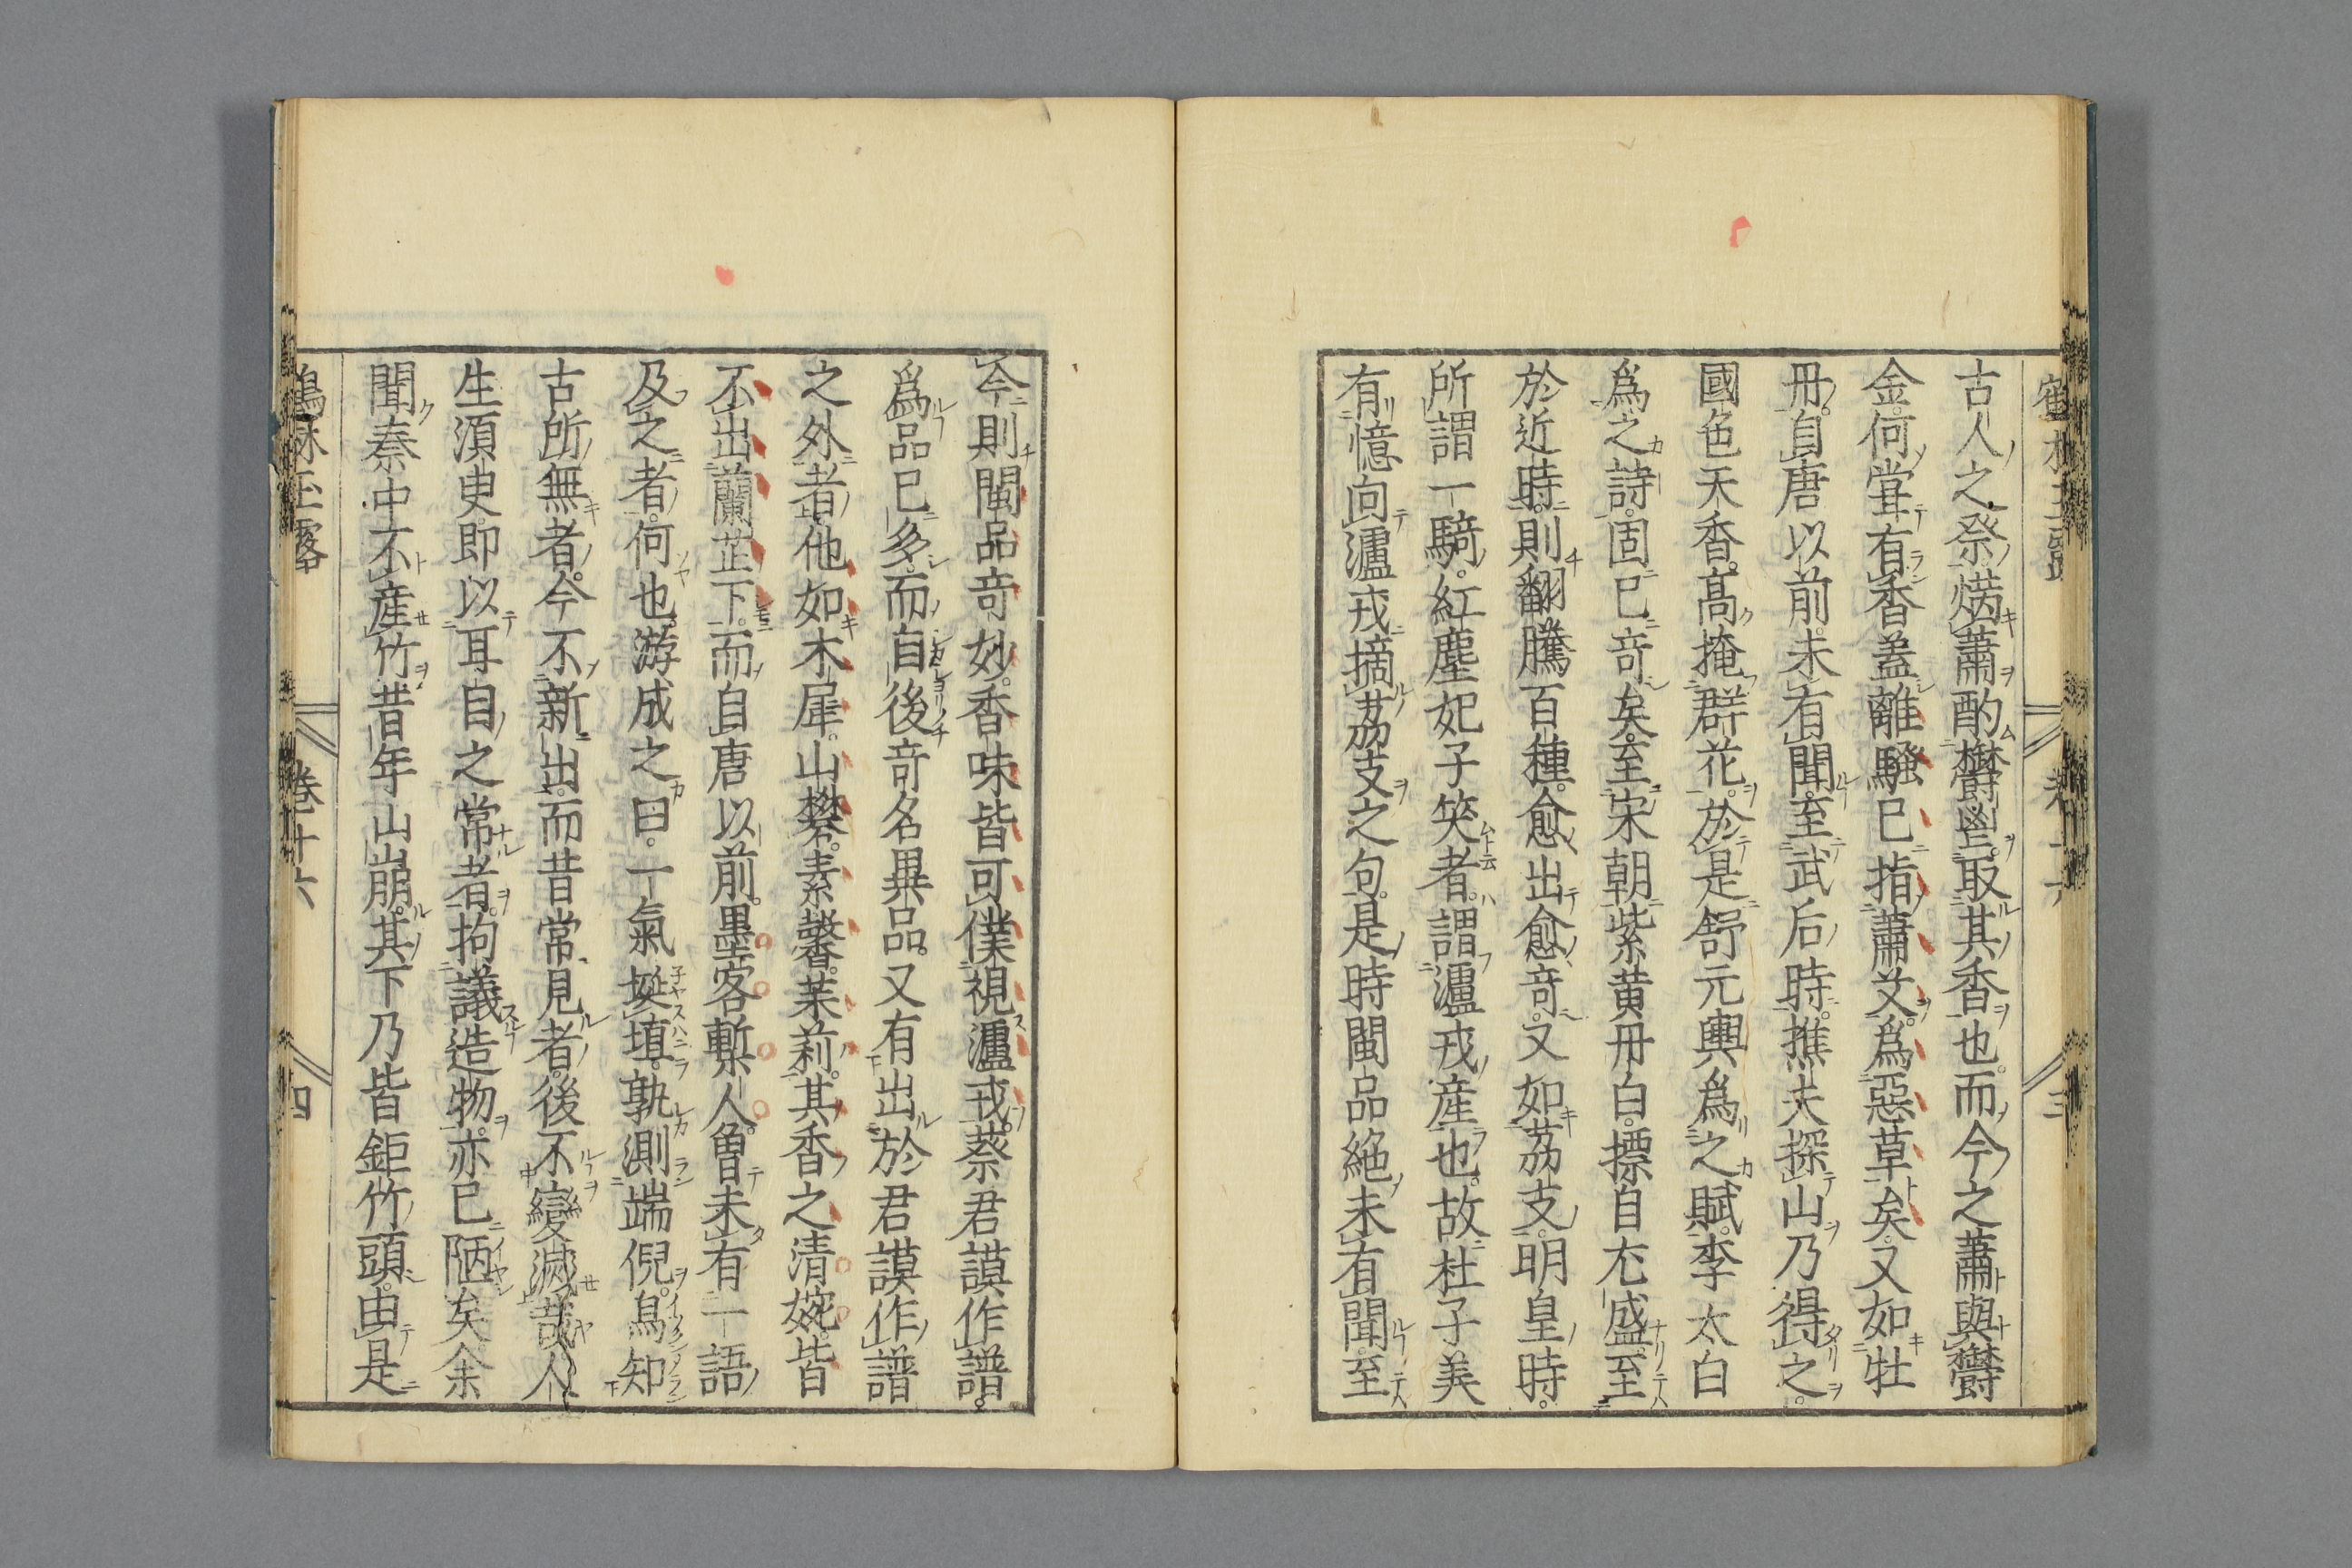 古人之祭焫蕭酌欝鬯取其香也而今之蕭與欝
金何甞有香盖離騷已指蕭艾爲惡草矣又如牡
丹自唐以前未有聞至武后時樵夫探山乃得之
國色天香高掩群花於是舒元輿爲之賦李太白
爲之詩固已竒矣至宋朝紫黄丹白摽自尤盛至
於近時則翻騰百種愈出愈竒又如茘支明皇時
所謂一騎紅塵妃子笑者謂瀘戎産也故杜子美
有憶向瀘戎摘茘支之句是時閩品絶未有聞至
今則閩品竒妙香味皆可僕視瀘戎蔡君謨作譜
爲品已多而自後竒名異品又有出於君謨作譜
之外者他如木犀山礬素馨茉莉其香之清婉皆
不出蘭芷下而自唐以前墨客槧人曽未有一語
及之者何也游成之曰一氣埏埴孰測端倪烏知
古所無者今不新出而昔常見者後不變滅哉人
生須臾即以耳目之常者拘議造物亦已陋矣余
聞秦中不産竹昔年山崩其下乃皆鉅竹頭由是
鶴林玉露 卷十六 四